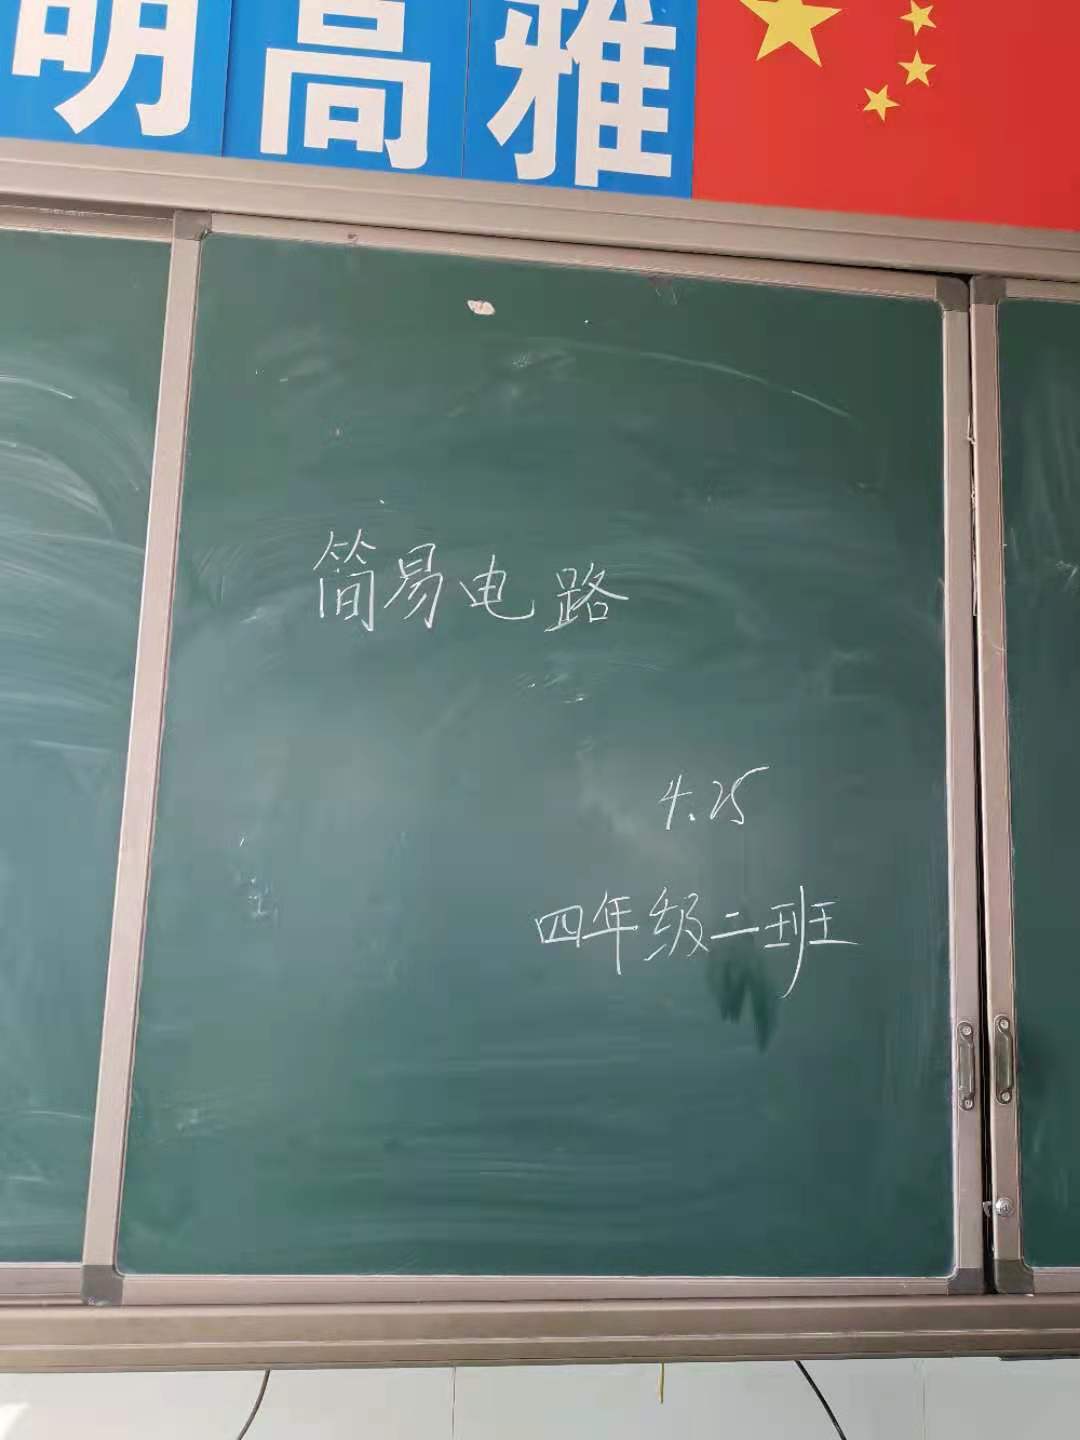 明高雅
简易电路
4.25
四年级二班